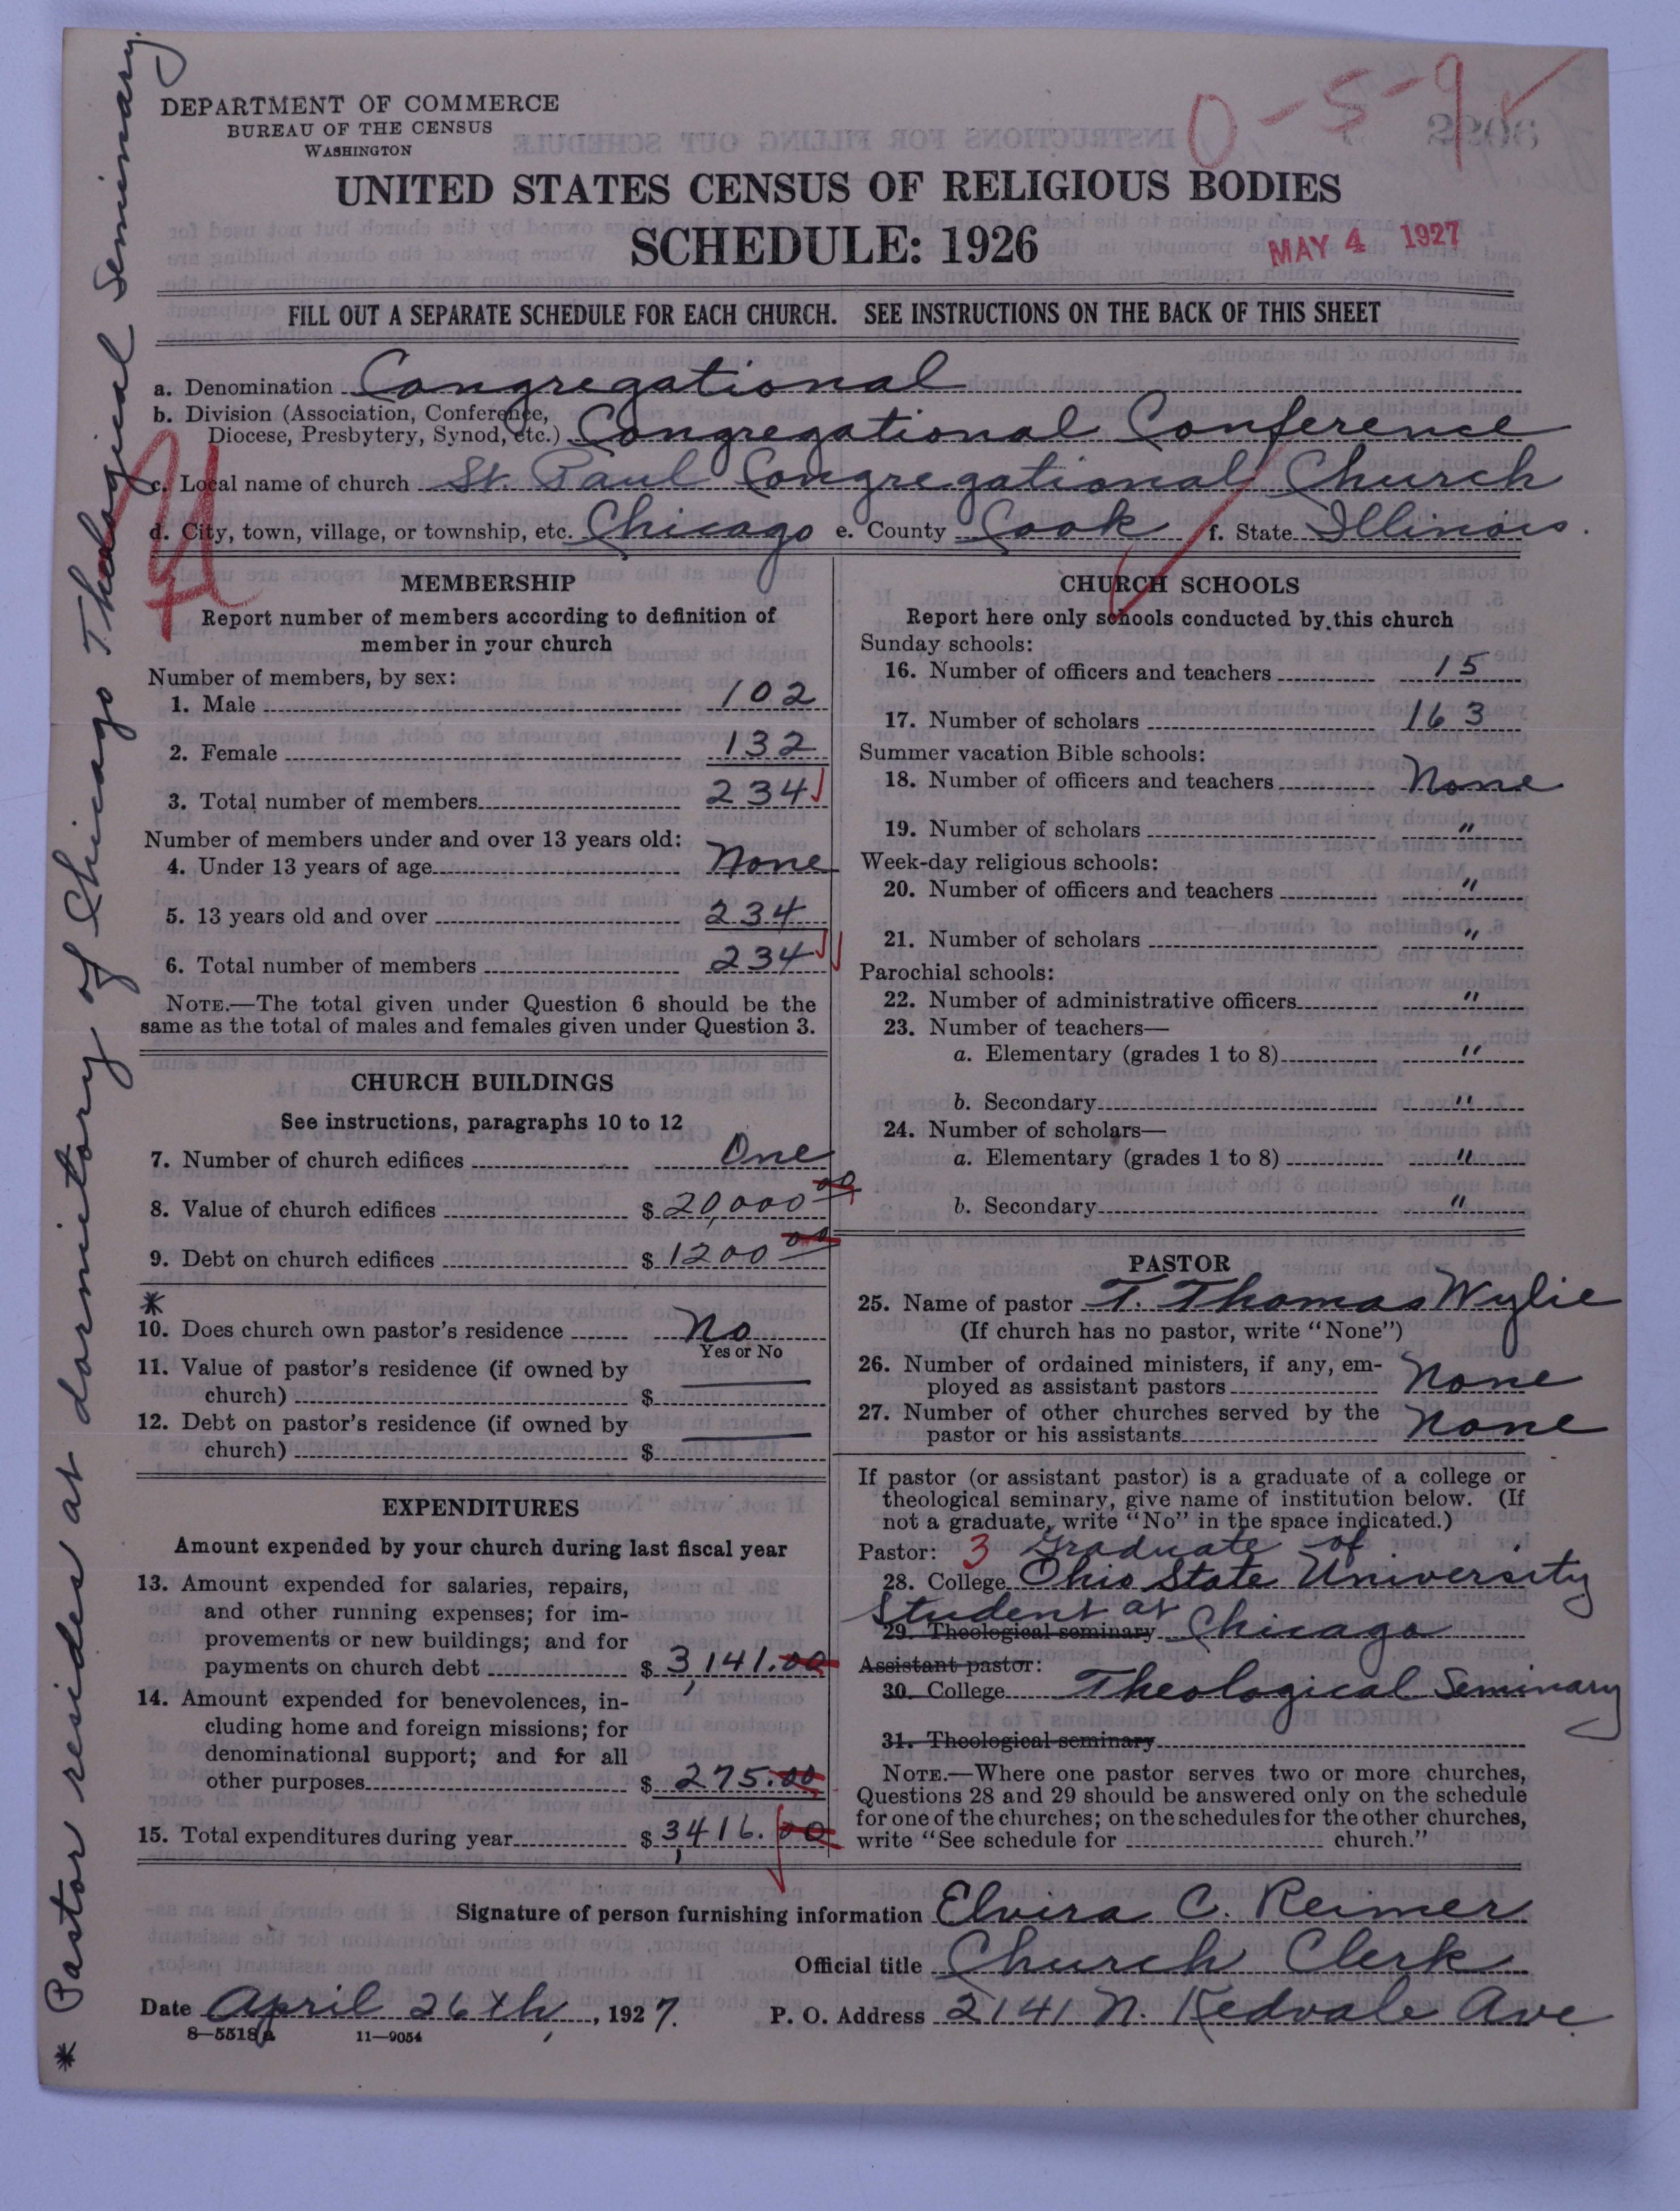 DEPARTMENT OF COMMERCE
BUREAU OF THE CENSUS
WASHINGTON
0-5-9
UNITED STATES CENSUS OF RELIGIOUS BODIES
SCHEDULE: 1926
MAY 4 1927
FILL OUT A SEPARATE SCHEDULE FOR EACH CHURCH. SEE INSTRUCTIONS ON THE BACK OF THIS SHEET
a. Denomination Congregational
b. Division (Association, Conference,
Diocese, Presbytery, Synod, etc.) Congregational Conference
c. Local name of church St. Paul Congregational Church
d. City, town, village, or township, etc. Chicago e. County Cook f. State Illinois.
MEMBERSHIP
Report number of members according to definition of
member in your church
Number of members, by sex:
1. Male 102
2. Female 132
3. Total number of members 234
Number of members under and over 13 years old:
4. Under 13 years of age None
5. 13 years old and over 234
6. Total number of members 234
NOTE.—The total given under Question 6 should be the
same as the total of males and females given under Question 3.
CHURCH BUILDINGS
See instructions, paragraphs 10 to 12
7. Number of church edifices One
8. Value of church edifices $ 20,000 00
9. Debt on church edifices $ 1200 00
*
10. Does church own pastor's residence No
Yes or No
11. Value of pastor's residence (if owned by
church) $
12. Debt on pastor's residence (if owned by
church) $
EXPENDITURES
Amount expended by your church during last fiscal year
13. Amount expended for salaries, repairs,
and other running expenses; for im-
provements or new buildings; and for
payments on church debt $ 3,141.00
14. Amount expended for benevolences, in-
cluding home and foreign missions; for
denominational support; and for all
other purposes $ 275.00
15. Total expenditures during year $ 3,416.00
CHURCH SCHOOLS
Report here only schools conducted by this church
Sunday schools:
16. Number of officers and teachers 15
17. Number of scholars 163
Summer vacation Bible schools:
18. Number of officers and teachers None
19. Number of scholars "
Week-day religious schools:
20. Number of officers and teachers "
21. Number of scholars "
Parochial schools:
22. Number of administrative officers "
23. Number of teachers—
a. Elementary (grades 1 to 8) "
b. Secondary "
24. Number of scholars—
a. Elementary (grades 1 to 8) "
b. Secondary "
PASTOR
25. Name of pastor T. Thomas Wylie
(If church has no pastor, write "None")
26. Number of ordained ministers, if any, em-
ployed as assistant pastors None
27. Number of other churches served by the
pastor or his assistants None
If pastor (or assistant pastor) is a graduate of a college or
theological seminary, give name of institution below. (If
not a graduate, write "No" in the space indicated.)
Pastor: 3 Graduate of
28. College Ohio State University
Student at
29. Theological seminary Chicago
Assistant pastor:
30. College Theological Seminary
31. Theological seminary
NOTE.—Where one pastor serves two or more churches,
Questions 28 and 29 should be answered only on the schedule
for one of the churches; on the schedules for the other churches,
write "See schedule for church."
Signature of person furnishing information Elvira C. Reimer
Official title Church Clerk
Date April 26th, 1927. P. O. Address 2141 N. Kedvale Ave.
8—5518a 11—9054
* Pastor resides at dormitory of Chicago Theological Seminary.